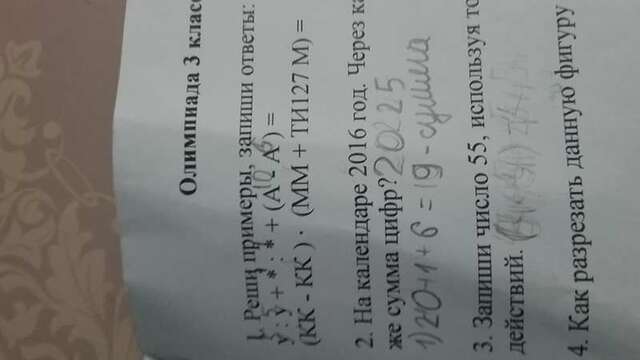 Олимпиада 3 клас
1. Реши примеры, запиши ответы:
у : у + * : * + (А - А) =
(КК - КК) · (ММ + ТИ127 М) =
2. На календаре 2016 год. Через ка
же сумма цифр? 2025
1) 20+1+6 = 19 - сумма
3. Запиши число 55, используя то
действий.
4. Как разрезать данную фигуру